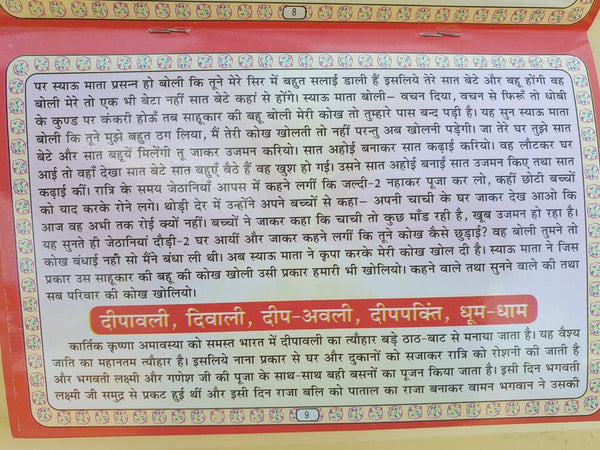 8
पर स्याऊ माता प्रसन्न हो बोली कि तूने मेरे सिर में बहुत सलाई डाली हैं इसलिये तेरे सात बेटे और बहू होंगी वह
बोली मेरे तो एक भी बेटा नहीं सात बेटे कहां से होंगे। स्याऊ माता बोली– वचन दिया, वचन से फिरूँ तो धोबी
के कुण्ड पर कंकरी होऊँ तब साहूकार की बहू बोली मेरी कोख तो तुम्हारे पास बन्द पड़ी है। यह सुन स्याऊ माता
बोली कि तूने मुझे बहुत ठग लिया, मैं तेरी कोख खोलती तो नहीं परन्तु अब खोलनी पड़ेगी। जा तेरे घर तुझे सात
बेटे और सात बहूयें मिलेंगी तू जाकर उजमन करियो। सात अहोई बनाकर सात कढ़ाई करियो। वह लौटकर घर
आई तो वहाँ देखा सात बेटे सात बहुएँ बैठे हैं वह खुश हो गई। उसने सात अहोई बनाईं सात उजमन किए तथा सात
कढ़ाई कीं। रात्रि के समय जेठानियाँ आपस में कहने लगीं कि जल्दी-2 नहाकर पूजा कर लो, कहीं छोटी बच्चों
को याद करके रोने लगे। थोड़ी देर में उन्होंने अपने बच्चों से कहा– अपनी चाची के घर जाकर देख आओ कि
आज वह अभी तक रोई क्यों नहीं। बच्चों ने जाकर कहा कि चाची तो कुछ माँड रही है, खूब उजमन हो रहा है।
यह सुनते ही जेठानियां दौड़ी-2 घर आयीं और जाकर कहने लगीं कि तूने कोख कैसे छुड़ाई? वह बोली तुमने तो
कोख बंधाई नही सो मैंने बंधा ली थी। अब स्याऊ माता ने कृपा करके मेरी कोख खोल दी है। स्याऊ माता ने जिस
प्रकार उस साहूकार की बहू की कोख खोली उसी प्रकार हमारी भी खोलियो। कहने वाले तथा सुनने वाले की तथा
सब परिवार की कोख खोलियो।
दीपावली, दिवाली, दीप-अवली, दीपपक्तिं, धूम-धाम
कार्तिक कृष्णा अमावस्या को समस्त भारत में दीपावली का त्यौहार बड़े ठाठ-बाट से मनाया जाता है। यह वैश्य
जाति का महानतम त्यौहार है। इसलिये नाना प्रकार से घर और दुकानों को सजाकर रात्रि को रोशनी की जाती है
और भगवती लक्ष्मी और गणेश जी की पूजा के साथ-साथ बही बसनों का पूजन किया जाता है। इसी दिन भगवती
लक्ष्मी जी समुद्र से प्रकट हुई थीं और इसी दिन राजा बलि को पाताल का राजा बनाकर वामन भगवान ने उसकी
9